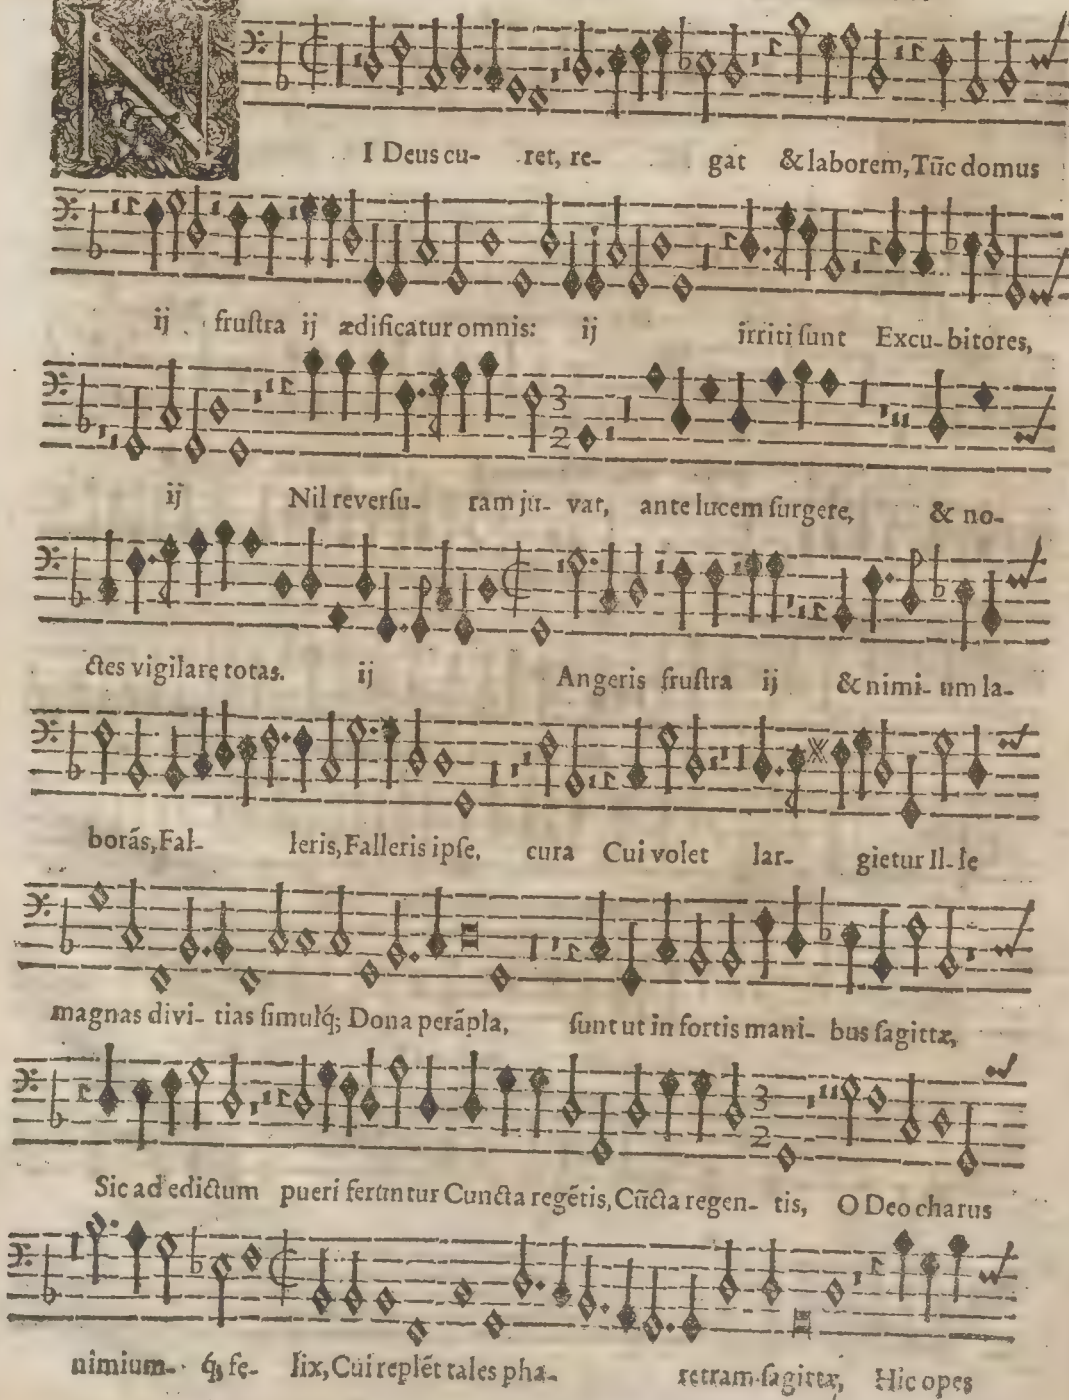 NI Deus cu- ret, re- gat & laborem, Tūc domus
ij fruſtra ij ædificatur omnis: ij irriti ſunt Excu-bitores,
ij Nil reverſu- ram ju- vat, ante lucem ſurgere, & no-
ctes vigilare totas. ij Angeris fruſtra ij & nimi- um la-
borās, Fal- leris, Falleris ipſe, cura Cui volet lar- gietur Il-le
magnas divi- tias ſimulq́; Dona perāpla, ſunt ut in fortis mani- bus ſagittæ,
Sic ad edictum pueri feruntur Cuncta regētis, Cūcta regen- tis, O Deo charus
nimium- q́, fe- lix, Cui replēt tales pha- retram ſagittæ, Hic opes